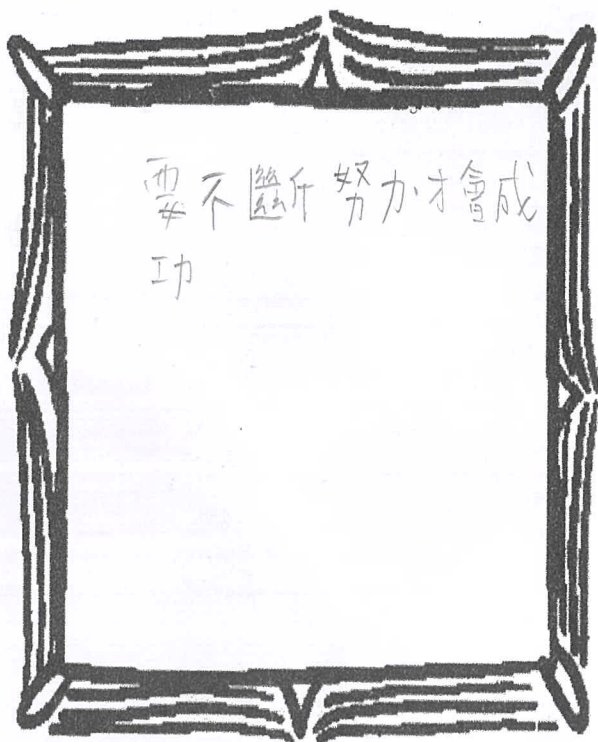 要不斷努力才會成
功